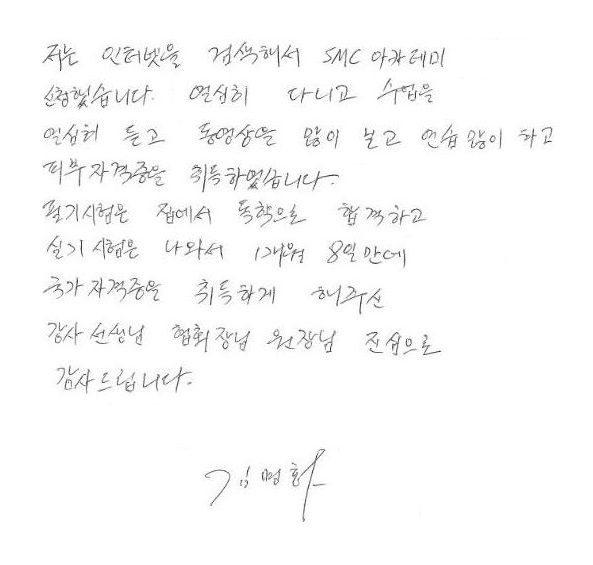 저는 인터넷을 검색해서 SMC 아카데미
신청했습니다. 열심히 다니고 수업을
열심히 듣고 동영상을 많이 보고 연습 많이 하고
피부 자격증을 취득하였습니다.
필기시험은 집에서 독학으로 합격하고
실기 시험은 나와서 1개월 8일만에
국가 자격증을 취득하게 해주신
강사 선생님 협회장님 원장님 진심으로
감사드립니다.
김명화